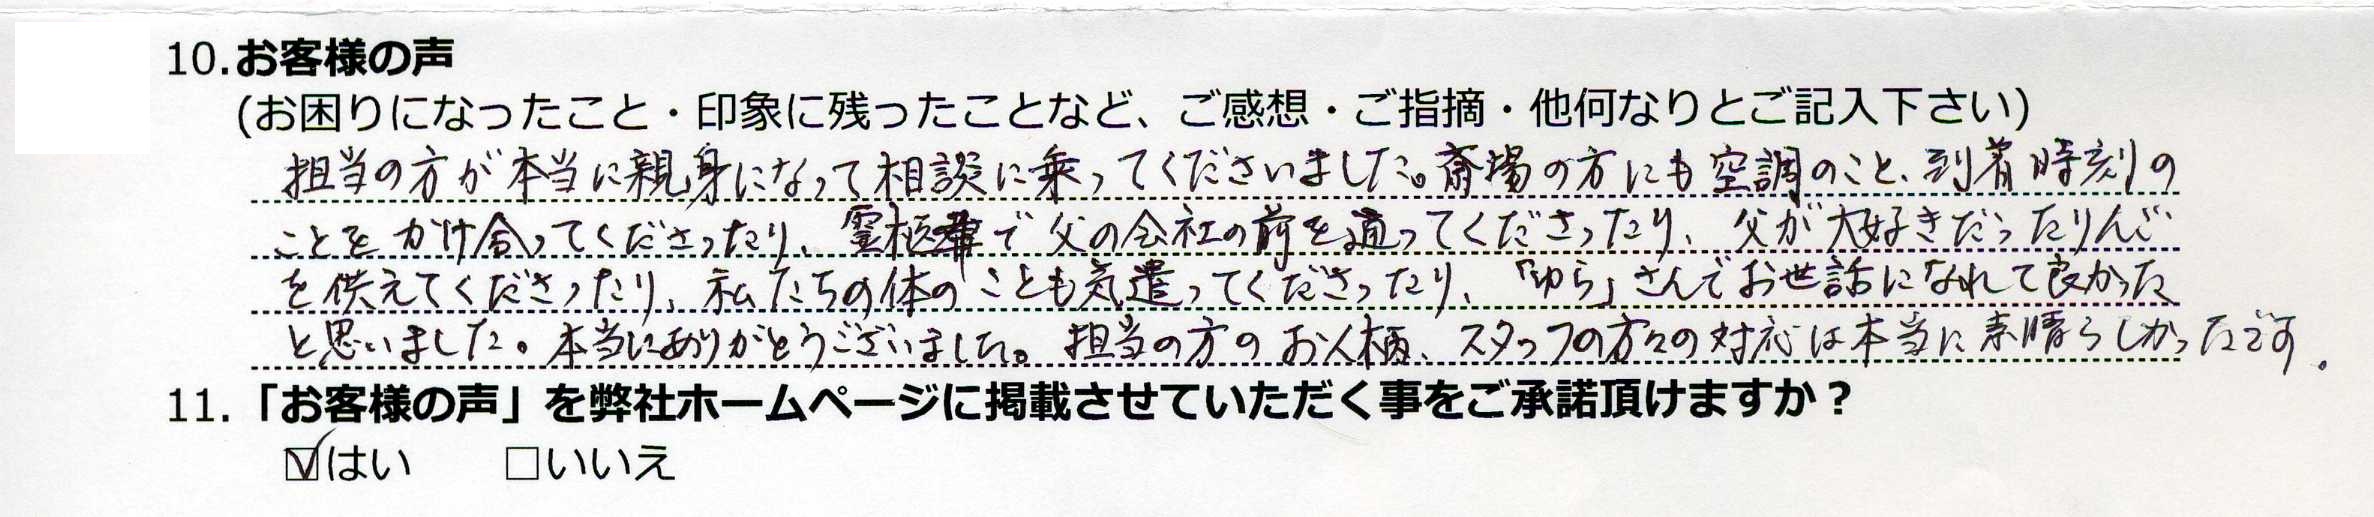 10.お客様の声
(お困りになったこと・印象に残ったことなど、ご感想・ご指摘・他何なりとご記入下さい)
担当の方が本当に親身になって相談に乗ってくださいました。斎場の方にも空調のこと、到着時刻の
ことをかけ合ってくださったり、霊柩車で父の会社の前を通ってくださったり、父が大好きだったりんご
を供えてくださったり、私たちの体のことも気遣ってくださったり、「ゆら」さんでお世話になれて良かった
と思いました。本当にありがとうございました。担当の方のお人柄、スタッフの方々の対応は本当に素晴らしかったです。
11.「お客様の声」を弊社ホームページに掲載させていただく事をご承諾頂けますか？
☑はい □いいえ